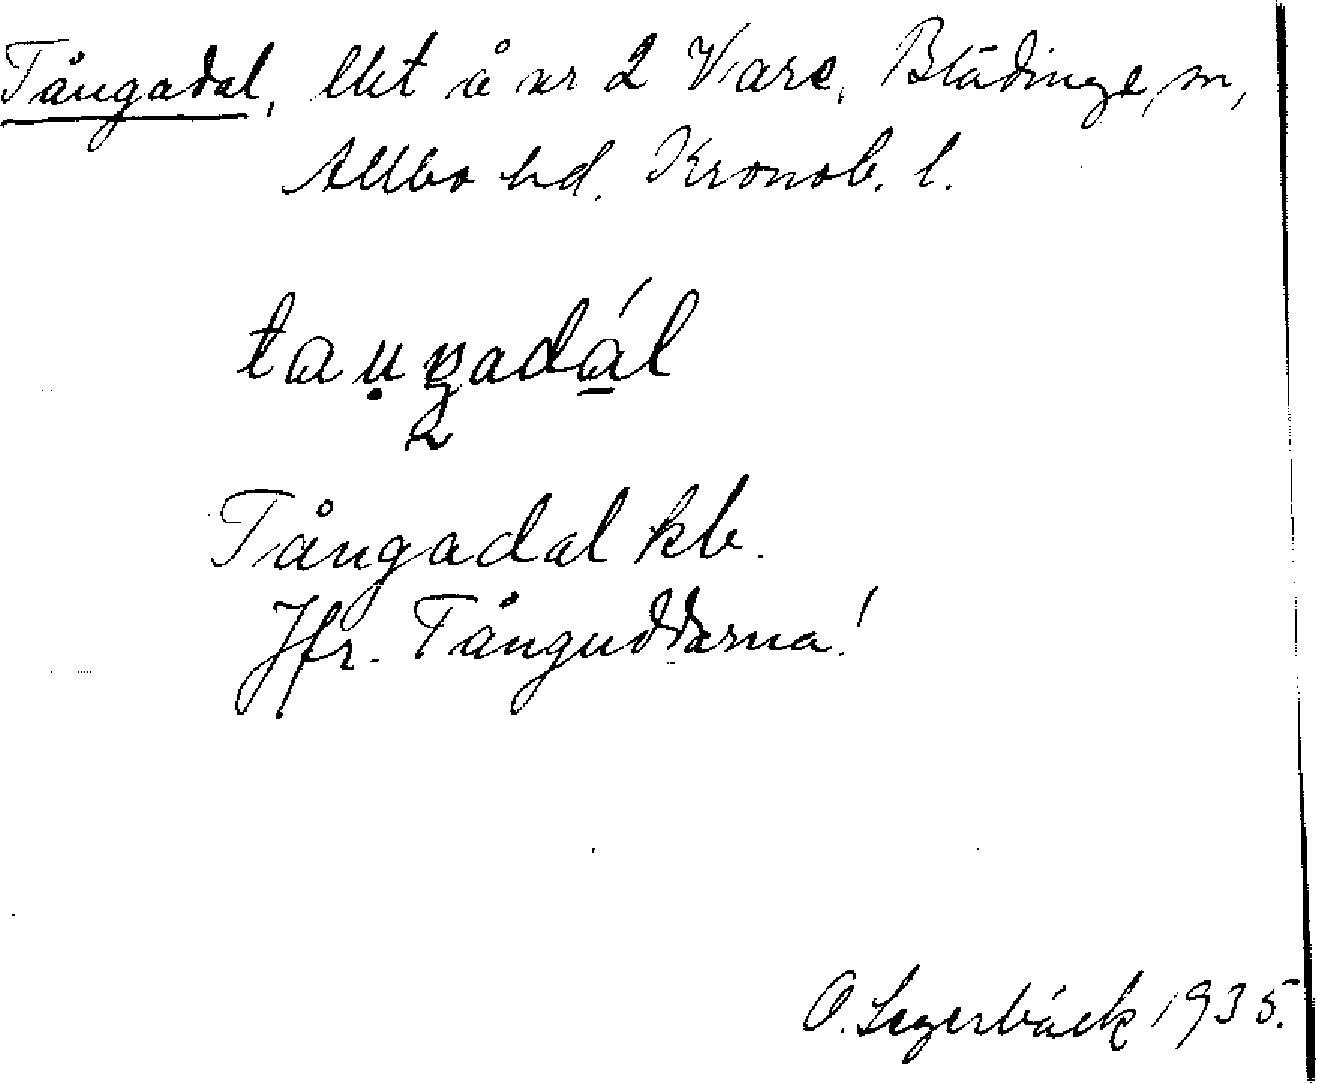 Tångadal, lht å nr 2 Vare, Blädinge sn,
Allbo hd. Kronob. l.
tau̥ŋadál
Tångadal kb.
Jfr. Tånguddarna!
O. Lagerbäck 1935.